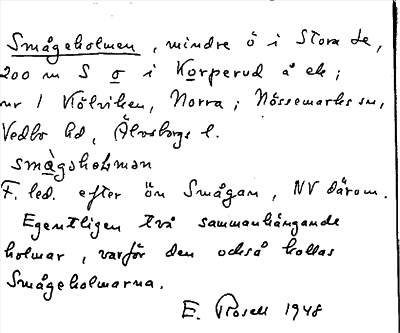 Smågeholmen, mindre ö i Stora Le,
200 m S o i Korperud å ek;
nr 1 Kölviken, Norra; Nössemarks sn,
Vedbo hd, Älvsborgs l.
smågəhɷlmən
F. led. efter ön Smågan, NV därom.
Egentligen två sammanhängande
holmar, varför den också kallas
Smågeholmarna.
E. Rosell 1948